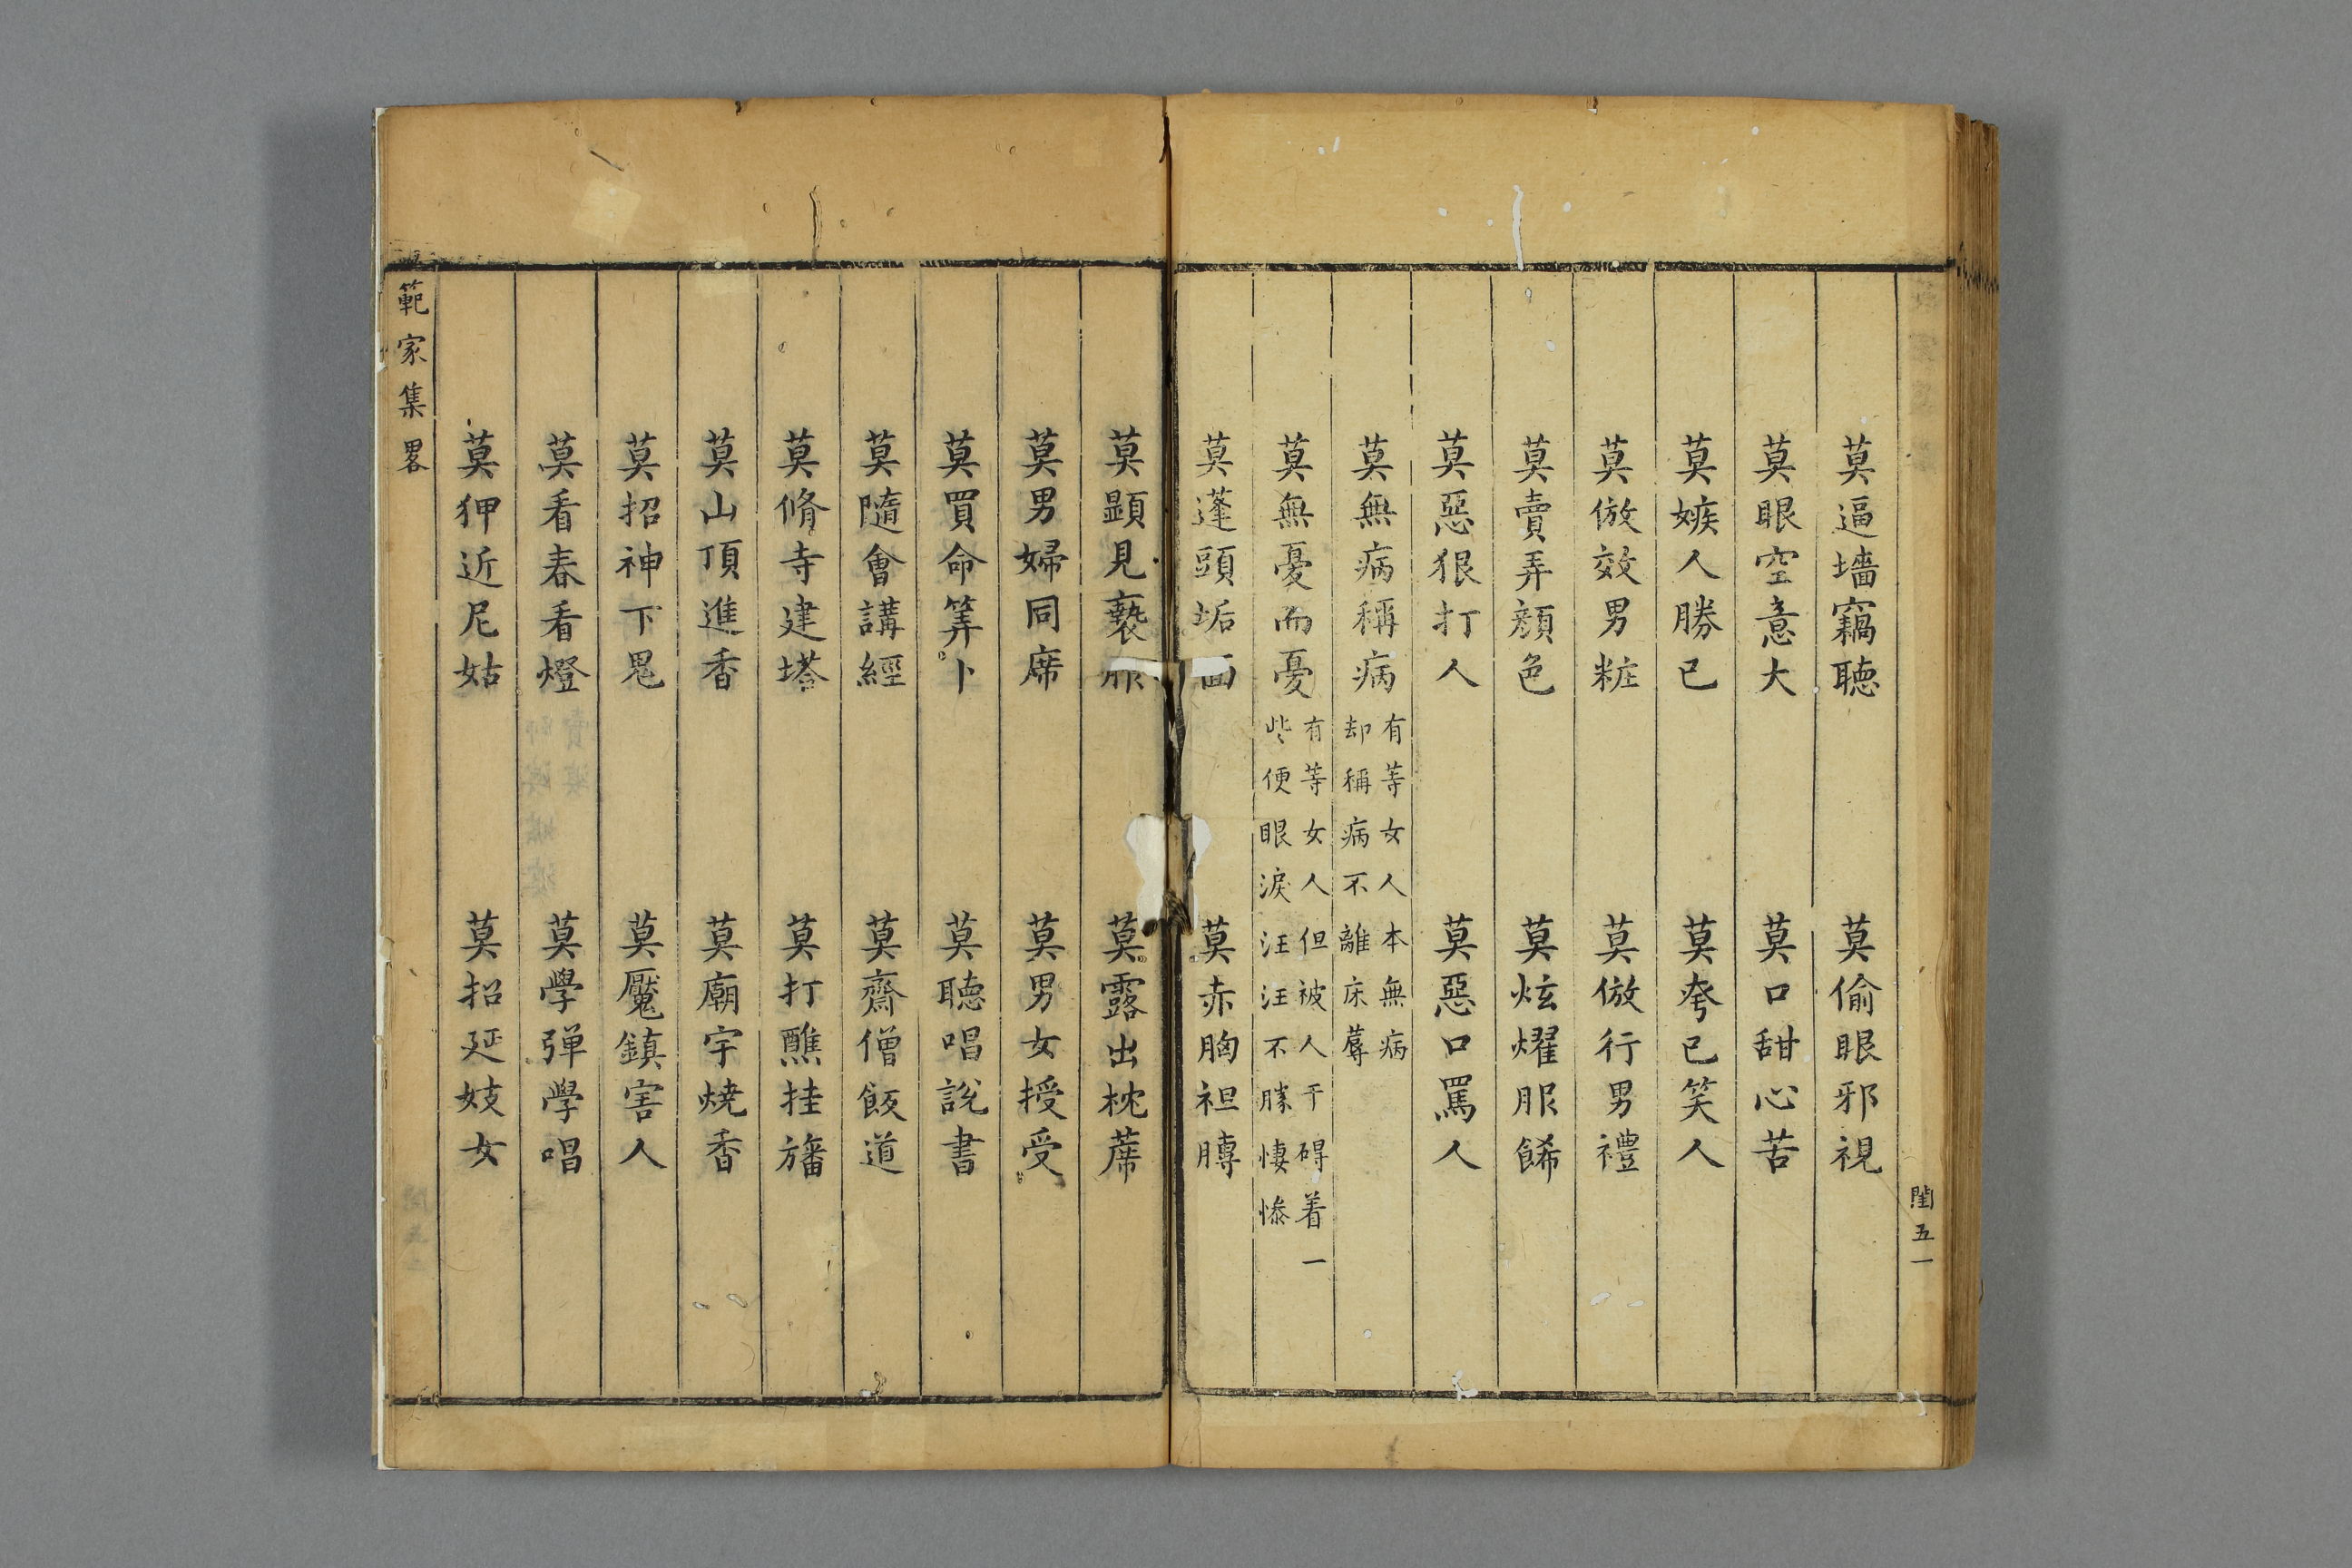 莫逼墻竊聴　莫偷眼邪視
莫眼空意大　莫口甜心苦
莫嫉人勝已　莫夸已笑人
莫倣效男粧　莫倣行男禮
莫賣弄顔色　莫炫燿服餙
莫惡狠打人　莫惡口罵人
莫無病稱病
有等女人本無病
却稱病不離床蓐
莫無憂而憂
有等女人但被人干碍着一
些便眼淚汪汪不勝悽慘
莫蓬頭垢面　莫赤胸袒膞
閨五一
莫顕見褻服　莫露出枕蓆
莫男婦同席　莫男女授受
莫買命筭卜　莫聴唱說書
莫隨會講經　莫齋僧飯道
莫脩寺建塔　莫打醮挂旛
莫山頂進香　莫廟宇燒香
莫招神下鬼　莫魘鎮害人
莫看春看燈　莫學弹學唱
莫狎近尼姑　莫招延妓女
範家集畧